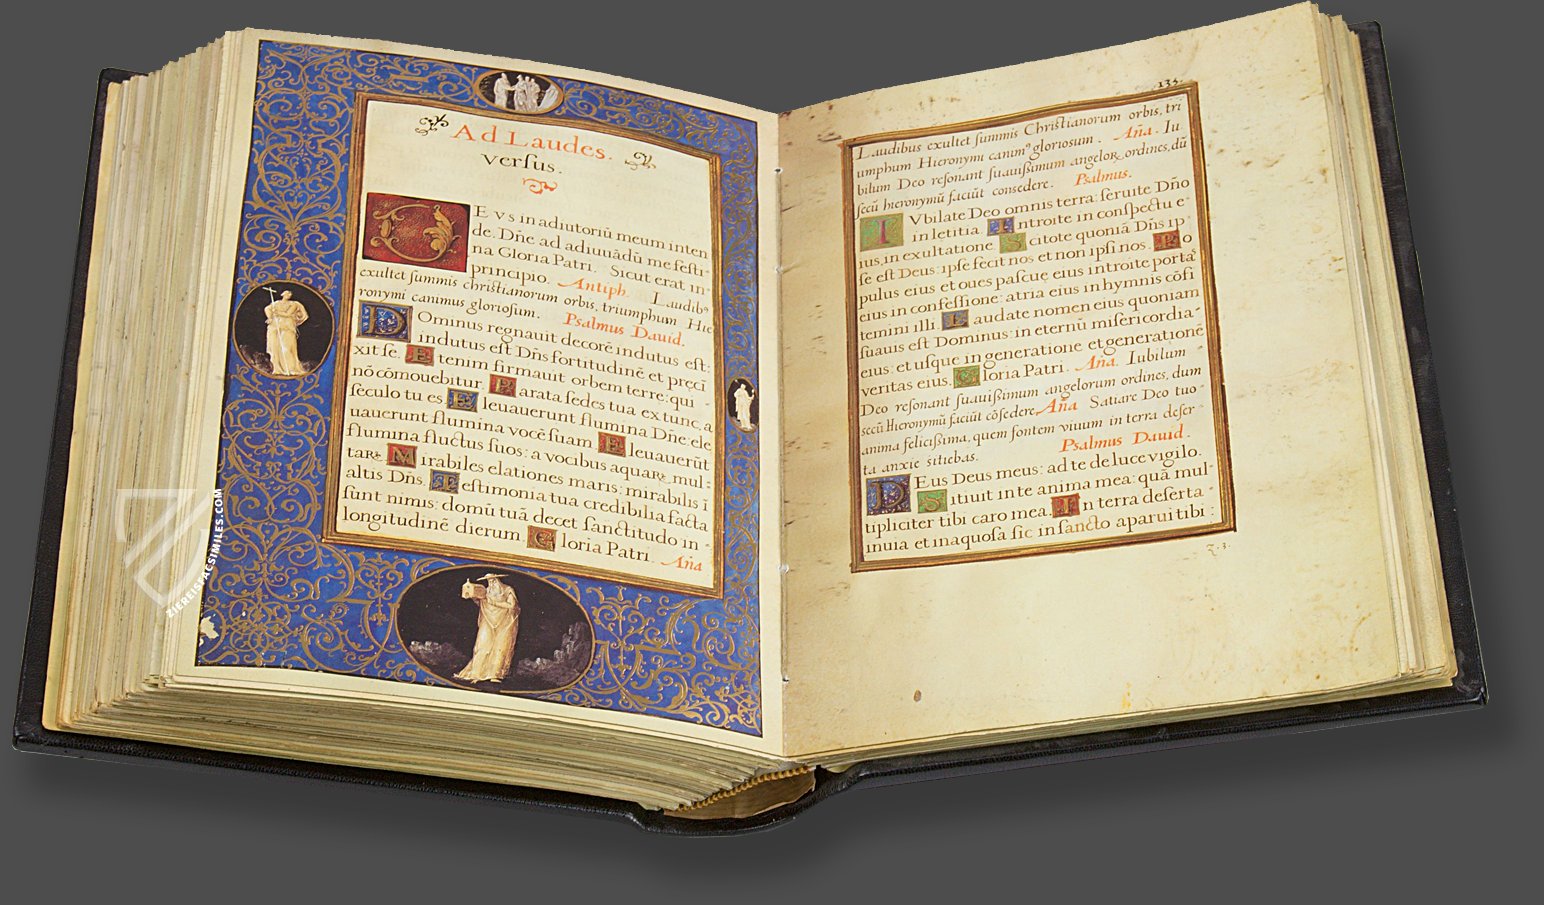 Ad Laudes.
versus.
DEVS in adiutoriū meum inten
de. Dn̄e ad adiuuādū me festi-
na Gloria Patri. Sicut erat in-
principio. Antiph. Laudibꝰ
exultet summis christianorum orbis, triumphum Hie
ronymi canimus gloriosum. Psalmus Dauid.
DOminus regnauit decorē indutus est:
indutus est Dn̄s fortitudinē et preci
xit se. Etenim firmauit orbem terre: qui
nō cōmouebitur. Parata sedes tua ex tunc, a
seculo tu es. Eleuauerunt flumina Dn̄e: ele
uauerunt flumina vocē suam. Eleuauerūt
flumina fluctus suos: a vocibus aquaꝝ mul-
taꝝ. Mirabiles elationes maris: mirabilis ī
altis Dn̄s. Testimonia tua credibilia facta
sunt nimis: domū tuā decet sanctitudo in-
longitudinē dierum. Gloria Patri. Ana
ZIEREISFACSIMILES.COM
135.
Laudibus exultet summis Christianorum orbis, tri
umphum Hieronymi canimꝰ gloriosum. Ana. Iu-
bilum Deo resonant suauissimum angeloꝝ ordines, dū
secū hieronymū faciūt consedere. Psalmus.
IVbilate Deo omnis terra: seruite Dn̄o
in letitia. Introite in conspectu e-
ius, in exultatione. Scitote quoniā Dn̄s ip
se est Deus: ipse fecit nos et non ipsi nos. Po
pulus eius et oues pascuę eius introite portas
eius in confessione: atria eius in hymnis cōfi
temini illi. Laudate nomen eius quoniam
suauis est Dominus: in eternū misericordia-
eius: et usque in generatione et generationē
veritas eius. Gloria Patri. Ana. Iubilum
Deo resonant suauissimum angelorum ordines, dum
secū Hieronymū faciūt cōsedere. Ana Satiare Deo tuo-
anima felicissima, quem fontem viuum in terra deser-
ta anxie sitiebas.
Psalmus Dauid.
DEus Deus meus: ad te de luce vigilo.
Sitiuit in te anima mea: quā mul-
tipliciter tibi caro mea. In terra deserta-
inuia et inaquosa sic in sancto aparui tibi:
z. 3.